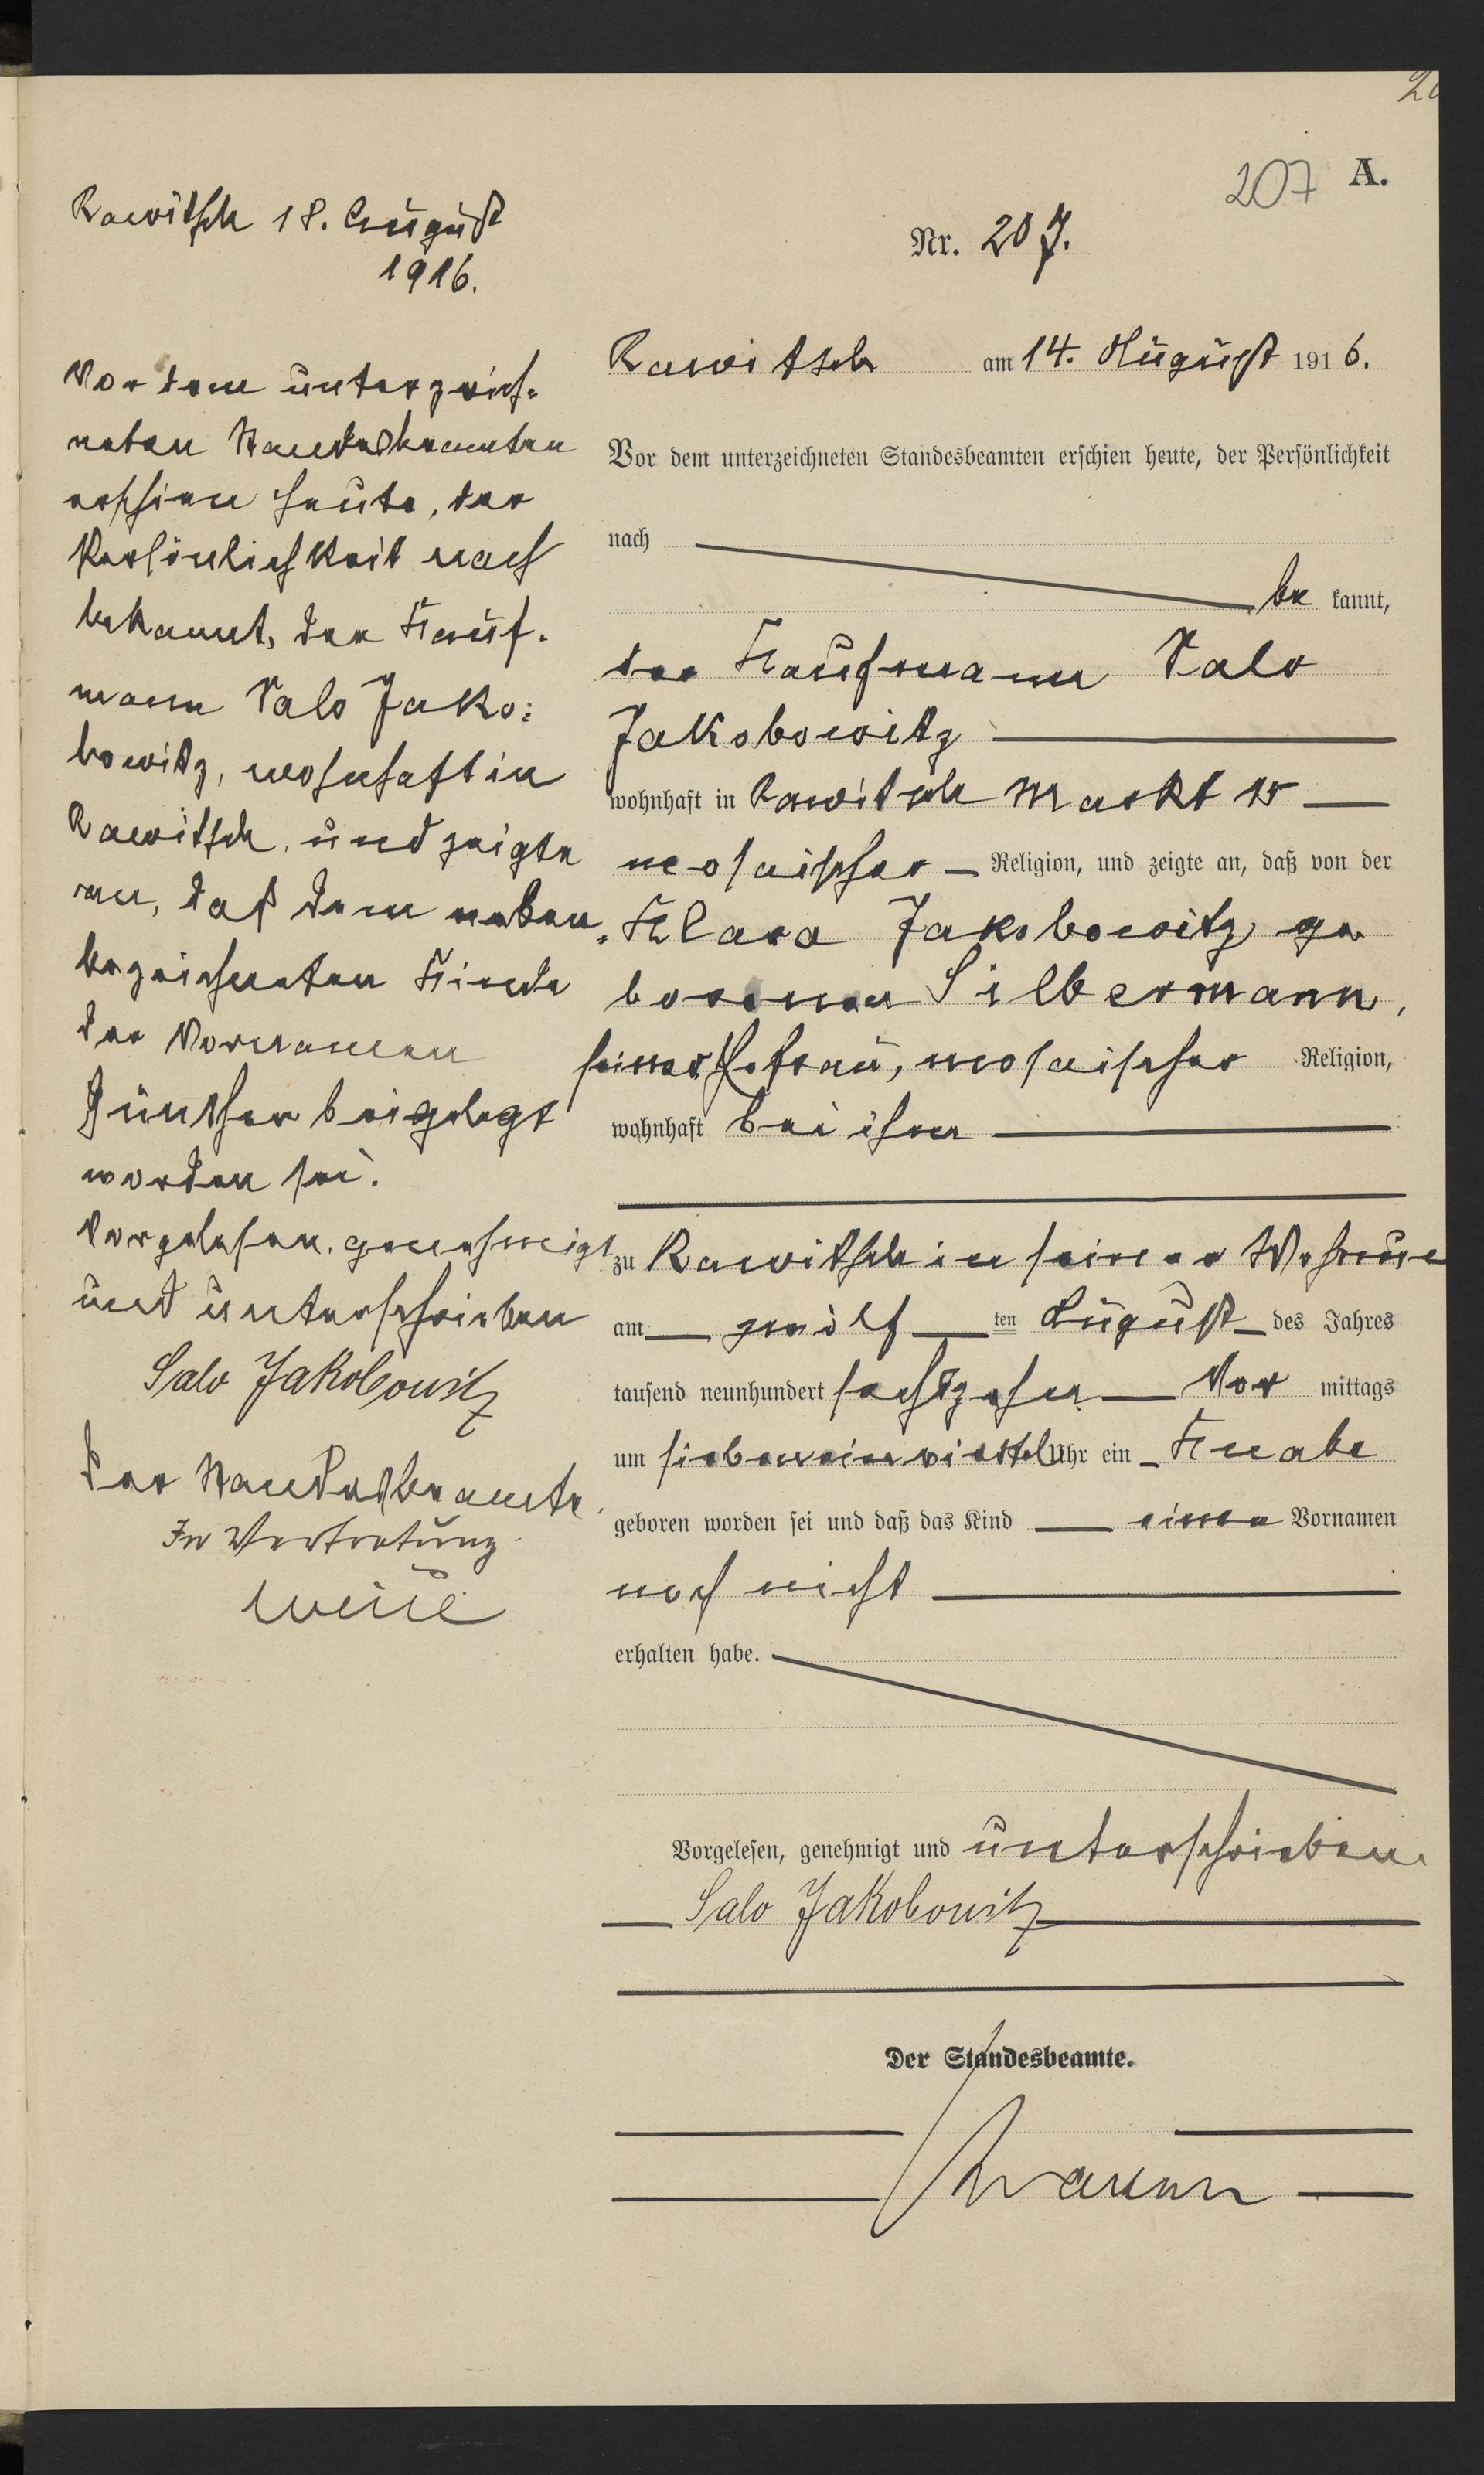 207 A.
Nr. 207.
Rawitsch am 14. August 1916.
Vor dem unterzeichneten Standesbeamten erschien heute, der Persönlichkeit
nach
be kannt,
der Kaufmann Salo
Jakobowitz
wohnhaft in Rawitsch Markt 15
mosaischer Religion, und zeigte an, daß von der
Klara Jakobowitz ge
borenen Silbermann,
seiner Ehefrau, mosaischer Religion,
wohnhaft bei ihm
zu Rawitsch in seiner Wohnun
am zwölf ten August des Jahres
tausend neunhundert sechszehn Vor mittags
um siebeneinviertel Uhr ein Knabe
geboren worden sei und daß das Kind einen Vornamen
noch nicht
erhalten habe.
Vorgelesen, genehmigt und unterschrieben.
Salo Jakobowitz
Der Standesbeamte.
Rawitsch 18. August
1916.
Vor dem unterzeich-
neten Standesbeamten
erschien heute, der
Persönlichkeit nach
bekannt, der Kauf-
mann Salo Jako-
bowitz, wohnhaft in
Rawitsch, und zeigte
an, daß dem neben-
bezeichneten Kinde
der Vornamen
Günther beigelegt
worden sei.
Vorgelesen, genehmigt
und unterschrieben
Salo Jakobowitz
Der Standesbeamte.
In Vertretung